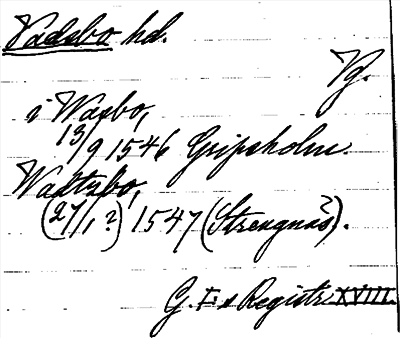 Vadsbo hd.
Vg.
i Wasbo,
13/9 1546 Gripsholm.
Wadtzbo,
(27/1 ?) 1547 (Strengnäs?).
G. I:s Registr. XVIII.